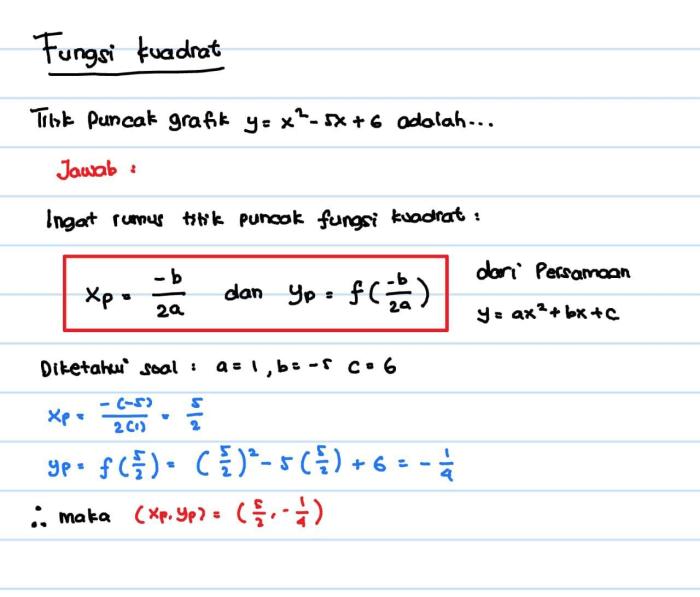 Fungsi kuadrat
Titik Puncak grafik y = x² - 5x + 6 adalah...
Jawab :
Ingat rumus titik puncak fungsi kuadrat :
xp = -b/2a dan yp = f(-b/2a)
dari Persamaan
y = ax² + bx + c
Diketahui soal : a = 1, b = -5 c = 6
xp = -(-5)/2(1) = 5/2
yp = f(5/2) = (5/2)² - 5(5/2) + 6 = -1/4
∴ maka (xp, yp) = (5/2, -1/4)